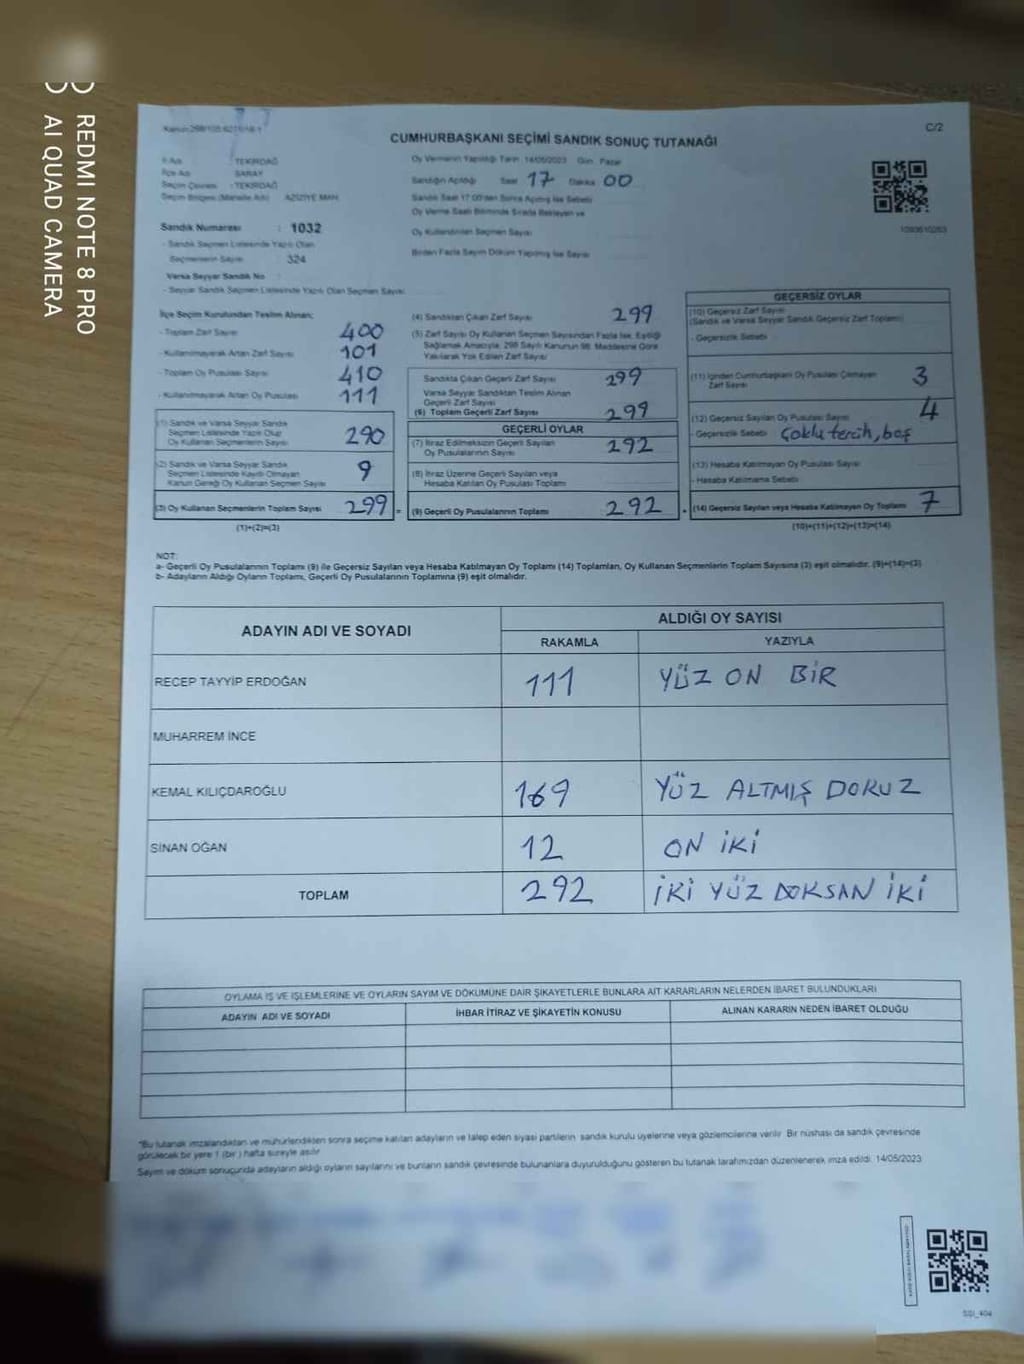 REDMI NOTE 8 PRO
AI QUAD CAMERA
C/2
CUMHURBAŞKANI SEÇİMİ SANDIK SONUÇ TUTANAĞI
İl Adı : TEKİRDAĞ
İlçe Adı : SARAY
Seçim Çevresi : TEKİRDAĞ
Seçim Bölgesi (Mahalle Adı) AZİZİYE MAH.
Sandık Numarası : 1032
- Sandık Seçmen Listesinde Yazılı Olan
Seçmenlerin Sayısı : 324
Varsa Seyyar Sandık No :
- Seyyar Sandık Seçmen Listesinde Yazılı Olan Seçmen Sayısı
Oy Vermenin Yapıldığı Tarih 14/05/2023 Gün Pazar
Sandığın Açıldığı Saat 17 Dakika 00
Sandık Saat 17:00'den Sonra Açılmış İse Sebebi
Oy Verme Saati Bitiminde Sırada Bekleyen ve
Oy Kullandırılan Seçmen Sayısı
Birden Fazla Sayım Döküm Yapılmış İse Sayısı
İlçe Seçim Kurulundan Teslim Alınan;
- Toplam Zarf Sayısı 400
- Kullanılmayarak Artan Zarf Sayısı 101
- Toplam Oy Pusulası Sayısı 410
- Kullanılmayarak Artan Oy Pusulası 111
(1) Sandık ve Varsa Seyyar Sandık
Seçmen Listesinde Yazılı Olup
Oy Kullanan Seçmenlerin Sayısı 290
(2) Sandık ve Varsa Seyyar Sandık
Seçmen Listesinde Kayıtlı Olmayan
Kanun Gereği Oy Kullanan Seçmen Sayısı 9
(3) Oy Kullanan Seçmenlerin Toplam Sayısı 299 =
(1)+(2)=(3)
(4) Sandıktan Çıkan Zarf Sayısı 299
(5) Zarf Sayısı Oy Kullanan Seçmen Sayısından Fazla İse, Eşitliği
Sağlamak Amacıyla, 298 Sayılı Kanunun 98. Maddesine Göre
Yakılarak Yok Edilen Zarf Sayısı
Sandıkta Çıkan Geçerli Zarf Sayısı 299
Varsa Seyyar Sandıktan Teslim Alınan
Geçerli Zarf Sayısı
(6) Toplam Geçerli Zarf Sayısı 299
GEÇERLİ OYLAR
(7) İtiraz Edilmeksizin Geçerli Sayılan
Oy Pusulalarının Sayısı 292
(8) İtiraz Üzerine Geçerli Sayılan veya
Hesaba Katılan Oy Pusulası Toplamı
(9) Geçerli Oy Pusulalarının Toplamı 292 +
GEÇERSİZ OYLAR
(10) Geçersiz Zarf Sayısı
(Sandık ve Varsa Seyyar Sandık Geçersiz Zarf Toplamı)
- Geçersizlik Sebebi
(11) İçinden Cumhurbaşkanı Oy Pusulası Çıkmayan
Zarf Sayısı 3
(12) Geçersiz Sayılan Oy Pusulası Sayısı 4
- Geçersizlik Sebebi Çoklu tercih, boş
(13) Hesaba Katılmayan Oy Pusulası Sayısı
- Hesaba Katılmama Sebebi
(14) Geçersiz Sayılan veya Hesaba Katılmayan Oy Toplamı 7
(10)+(11)+(12)+(13)=(14)
NOT:
a- Geçerli Oy Pusulalarının Toplamı (9) ile Geçersiz Sayılan veya Hesaba Katılmayan Oy Toplamı (14) Toplamları, Oy Kullanan Seçmenlerin Toplam Sayısına (3) eşit olmalıdır. (9)+(14)=(3)
b- Adayların Aldığı Oyların Toplamı, Geçerli Oy Pusulalarının Toplamına (9) eşit olmalıdır.
ADAYIN ADI VE SOYADI
ALDIĞI OY SAYISI
RAKAMLA YAZIYLA
RECEP TAYYİP ERDOĞAN 111 YÜZ ON BİR
MUHARREM İNCE
KEMAL KILIÇDAROĞLU 169 YÜZ ALTMIŞ DOKUZ
SİNAN OĞAN 12 ON İKİ
TOPLAM 292 İKİ YÜZ DOKSAN İKİ
OYLAMA İŞ VE İŞLEMLERİNE VE OYLARIN SAYIM VE DÖKÜMÜNE DAİR ŞİKAYETLERLE BUNLARA AİT KARARLARIN NELERDEN İBARET BULUNDUKLARI
ADAYIN ADI VE SOYADI İHBAR İTİRAZ VE ŞİKAYETİN KONUSU ALINAN KARARIN NEDEN İBARET OLDUĞU
"Bu tutanak imzalandıktan ve mühürlendikten sonra seçime katılan adayların ve talep eden siyasi partilerin sandık kurulu üyelerine veya gözlemcilerine verilir. Bir nüshası da sandık çevresinde
görülecek bir yere 1 (bir) hafta süreyle asılır
Sayım ve döküm sonucunda adayların aldığı oyların sayılarını ve bunların sandık çevresinde bulunanlara duyurulduğunu gösteren bu tutanak tarafımızdan düzenlenerek imza edildi. 14/05/2023